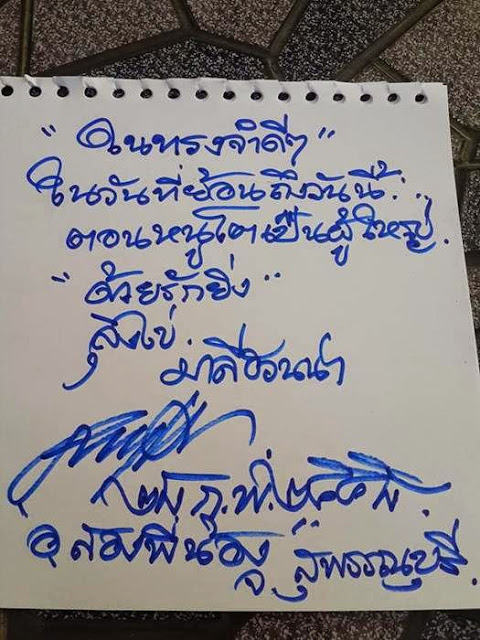 "ในทรงจำดีๆ"
ในวันที่ย้อนถึงวันนี้...
ตอนหนูโตเป็นผู้ใหญ่.
"ด้วยรักยิ่ง"
ลุงไข่.
มาลีฮวนน่า
ก.พ.
อ สองพี่น้อง จ สุพรรณบุรี.